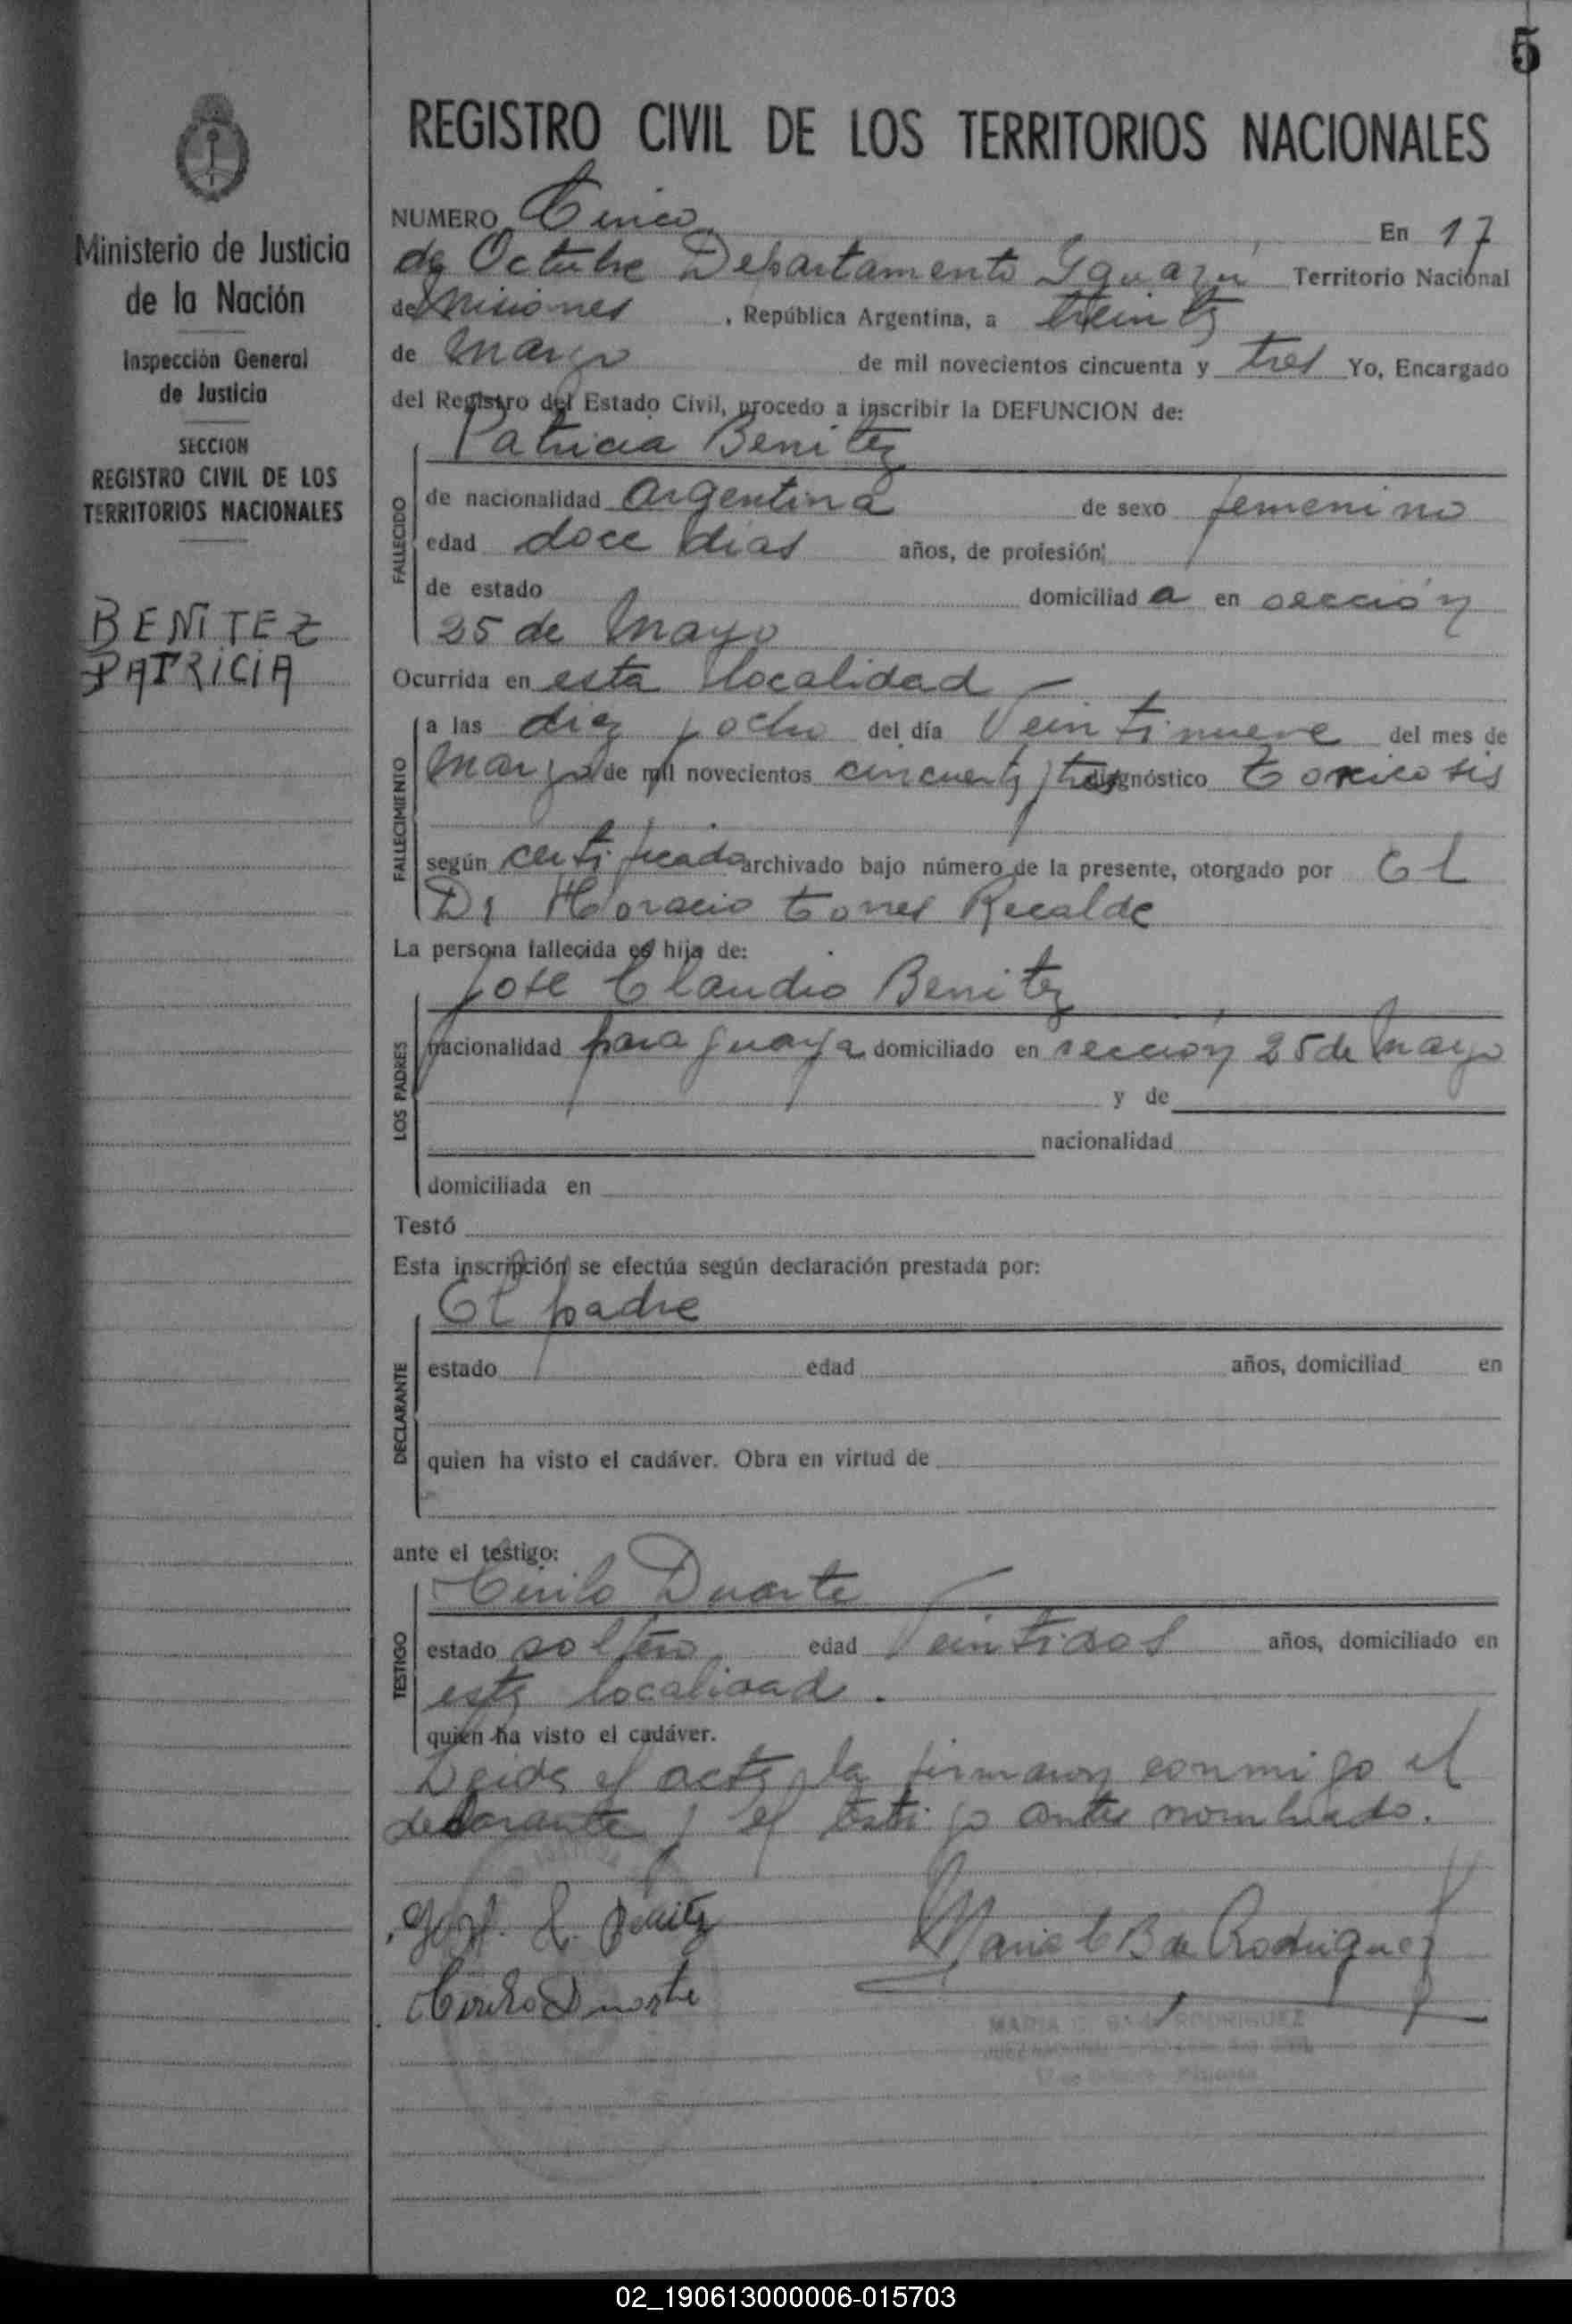 5
REGISTRO CIVIL DE LOS TERRITORIOS NACIONALES
Ministerio de Justicia
de la Nación
Inspección General
de Justicia
SECCION
REGISTRO CIVIL DE LOS
TERRITORIOS NACIONALES
BENITEZ
PATRICIA
NUMERO Cinco En 17
de Octubre Departamento Iguazú Territorio Nacional
de Misiones, República Argentina, a treinta
de Marzo de mil novecientos cincuenta y tres Yo, Encargado
del Registro del Estado Civil, procedo a inscribir la DEFUNCION de:
Patricia Benitez
FALLECIDO
de nacionalidad argentina de sexo femenino
edad doce dias años, de profesión
de estado domiciliad a en sección
25 de Mayo
Ocurrida en esta localidad
FALLECIMIENTO
a las diez y ocho del día Veintinueve del mes de
Marzo de mil novecientos cincuenta y tres diagnóstico toxicosis
según certificado archivado bajo número de la presente, otorgado por El
Dr Horacio torres Recalde
La persona fallecida es hija de:
Jose Claudio Benitez
LOS PADRES
nacionalidad paraguaya domiciliado en sección 25 de Mayo
y de
nacionalidad
domiciliada en
Testó
Esta inscripción se efectúa según declaración prestada por:
El padre
DECLARANTE
estado edad años, domiciliad en
quien ha visto el cadáver. Obra en virtud de
ante el testigo:
Cirilo Duarte
TESTIGO
estado soltero edad Veintidos años, domiciliado en
esta localidad.
quien ha visto el cadáver.
Leida el acta, la firmaron conmigo el
declarante y el testigo antes nombrado.
José C. Benitez
Maria C B de Rodriguez
Cirilo Duarte
MARIA C. B. de RODRIGUEZ
02_190613000006-015703